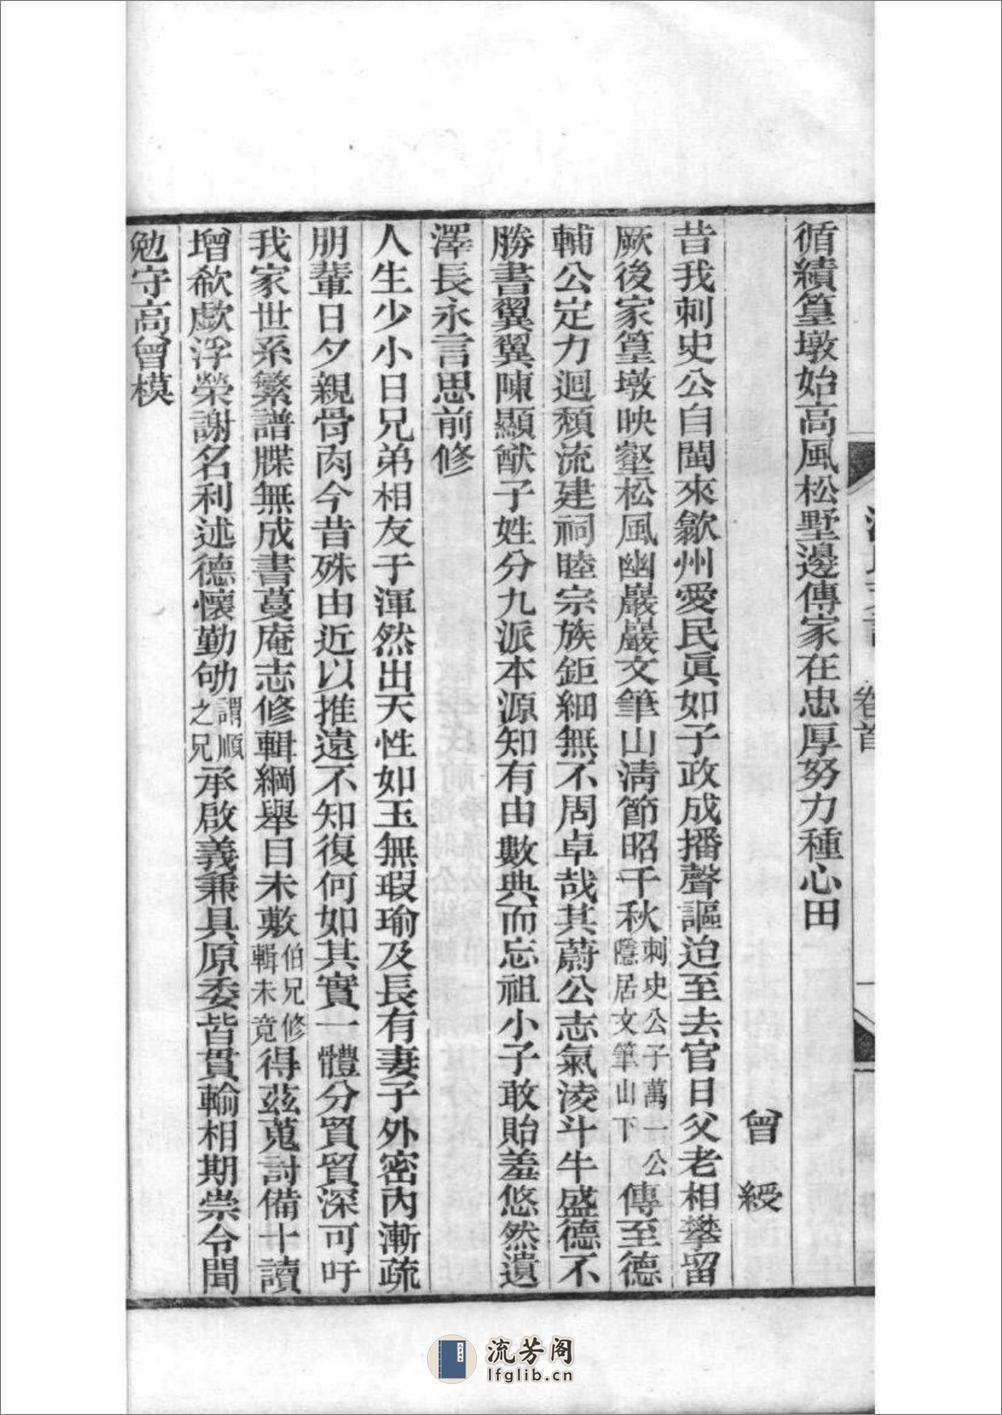 循績篁墩始高風松墅邊傳家在忠厚努力種心田
曾綬
昔我刺史公自閩來歙州愛民眞如子政成播聲謳迨至去官日父老相攀留
厥後家篁墩映壑松風幽巖巖文筆山淸節昭千秋刺史公子萬一公隱居文筆山下傳至德
輔公定力迴頹流建祠睦宗族鉅細無不周卓哉其蔚公志氣淩斗牛盛德不
勝書翼翼陳顯猷子姓分九派本源知有由數典而忘祖小子敢貽羞悠然遺
澤長永言思前修
人生少小日兄弟相友于渾然出天性如玉無瑕瑜及長有妻子外密內漸疏
朋輩日夕親骨肉今昔殊由近以推遠不知復何如其實一體分貿貿深可吁
我家世系繁譜牒無成書蔓庵志修輯綱舉目未敷伯兄修輯未竟得茲蒐討備十讀
增欷歔浮榮謝名利述德懷勤劬謂順之兄承啟義兼具原委皆貫輸相期崇令聞
勉守高曾模
卷首
一
流芳阁
lfglib.cn